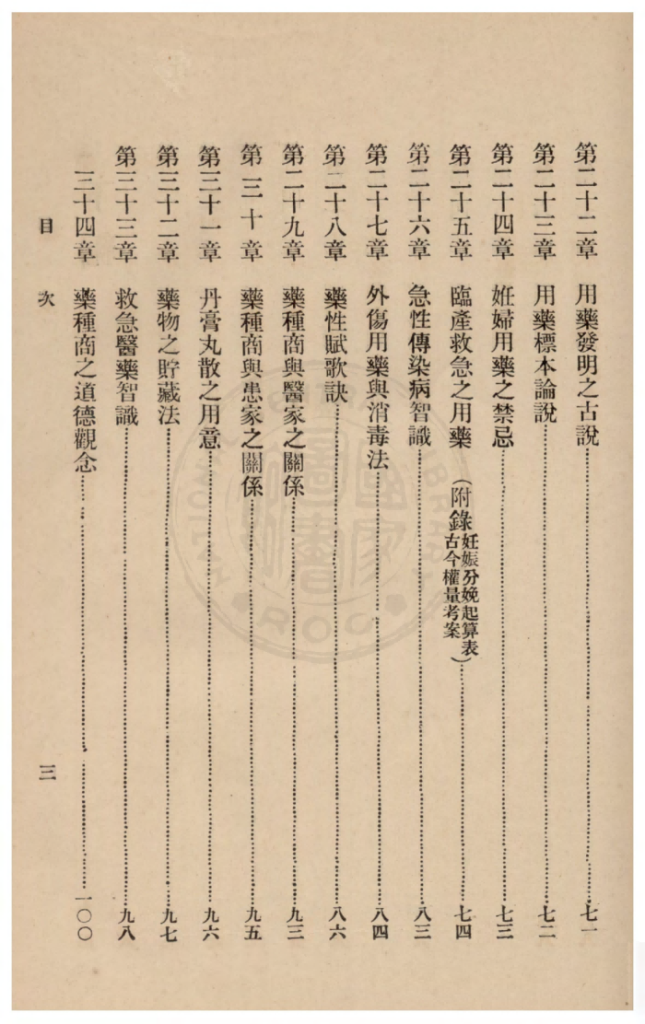 第二十二章 用藥發明之古說 七一
第二十三章 用藥標本論說 七二
第二十四章 姙婦用藥之禁忌 七三
第二十五章 臨產救急之用藥 (附錄 妊娠分娩起算表 古今權量考案) 七四
第二十六章 急性傳染病智識 八三
第二十七章 外傷用藥與消毒法 八四
第二十八章 藥性賦歌訣 八六
第二十九章 藥種商與醫家之關係 九三
第三十章 藥種商與患家之關係 九五
第三十一章 丹膏丸散之用意 九六
第三十二章 藥物之貯藏法 九七
第三十三章 救急醫藥智識 九八
三十四章 藥種商之道德觀念 一〇〇
目次 三